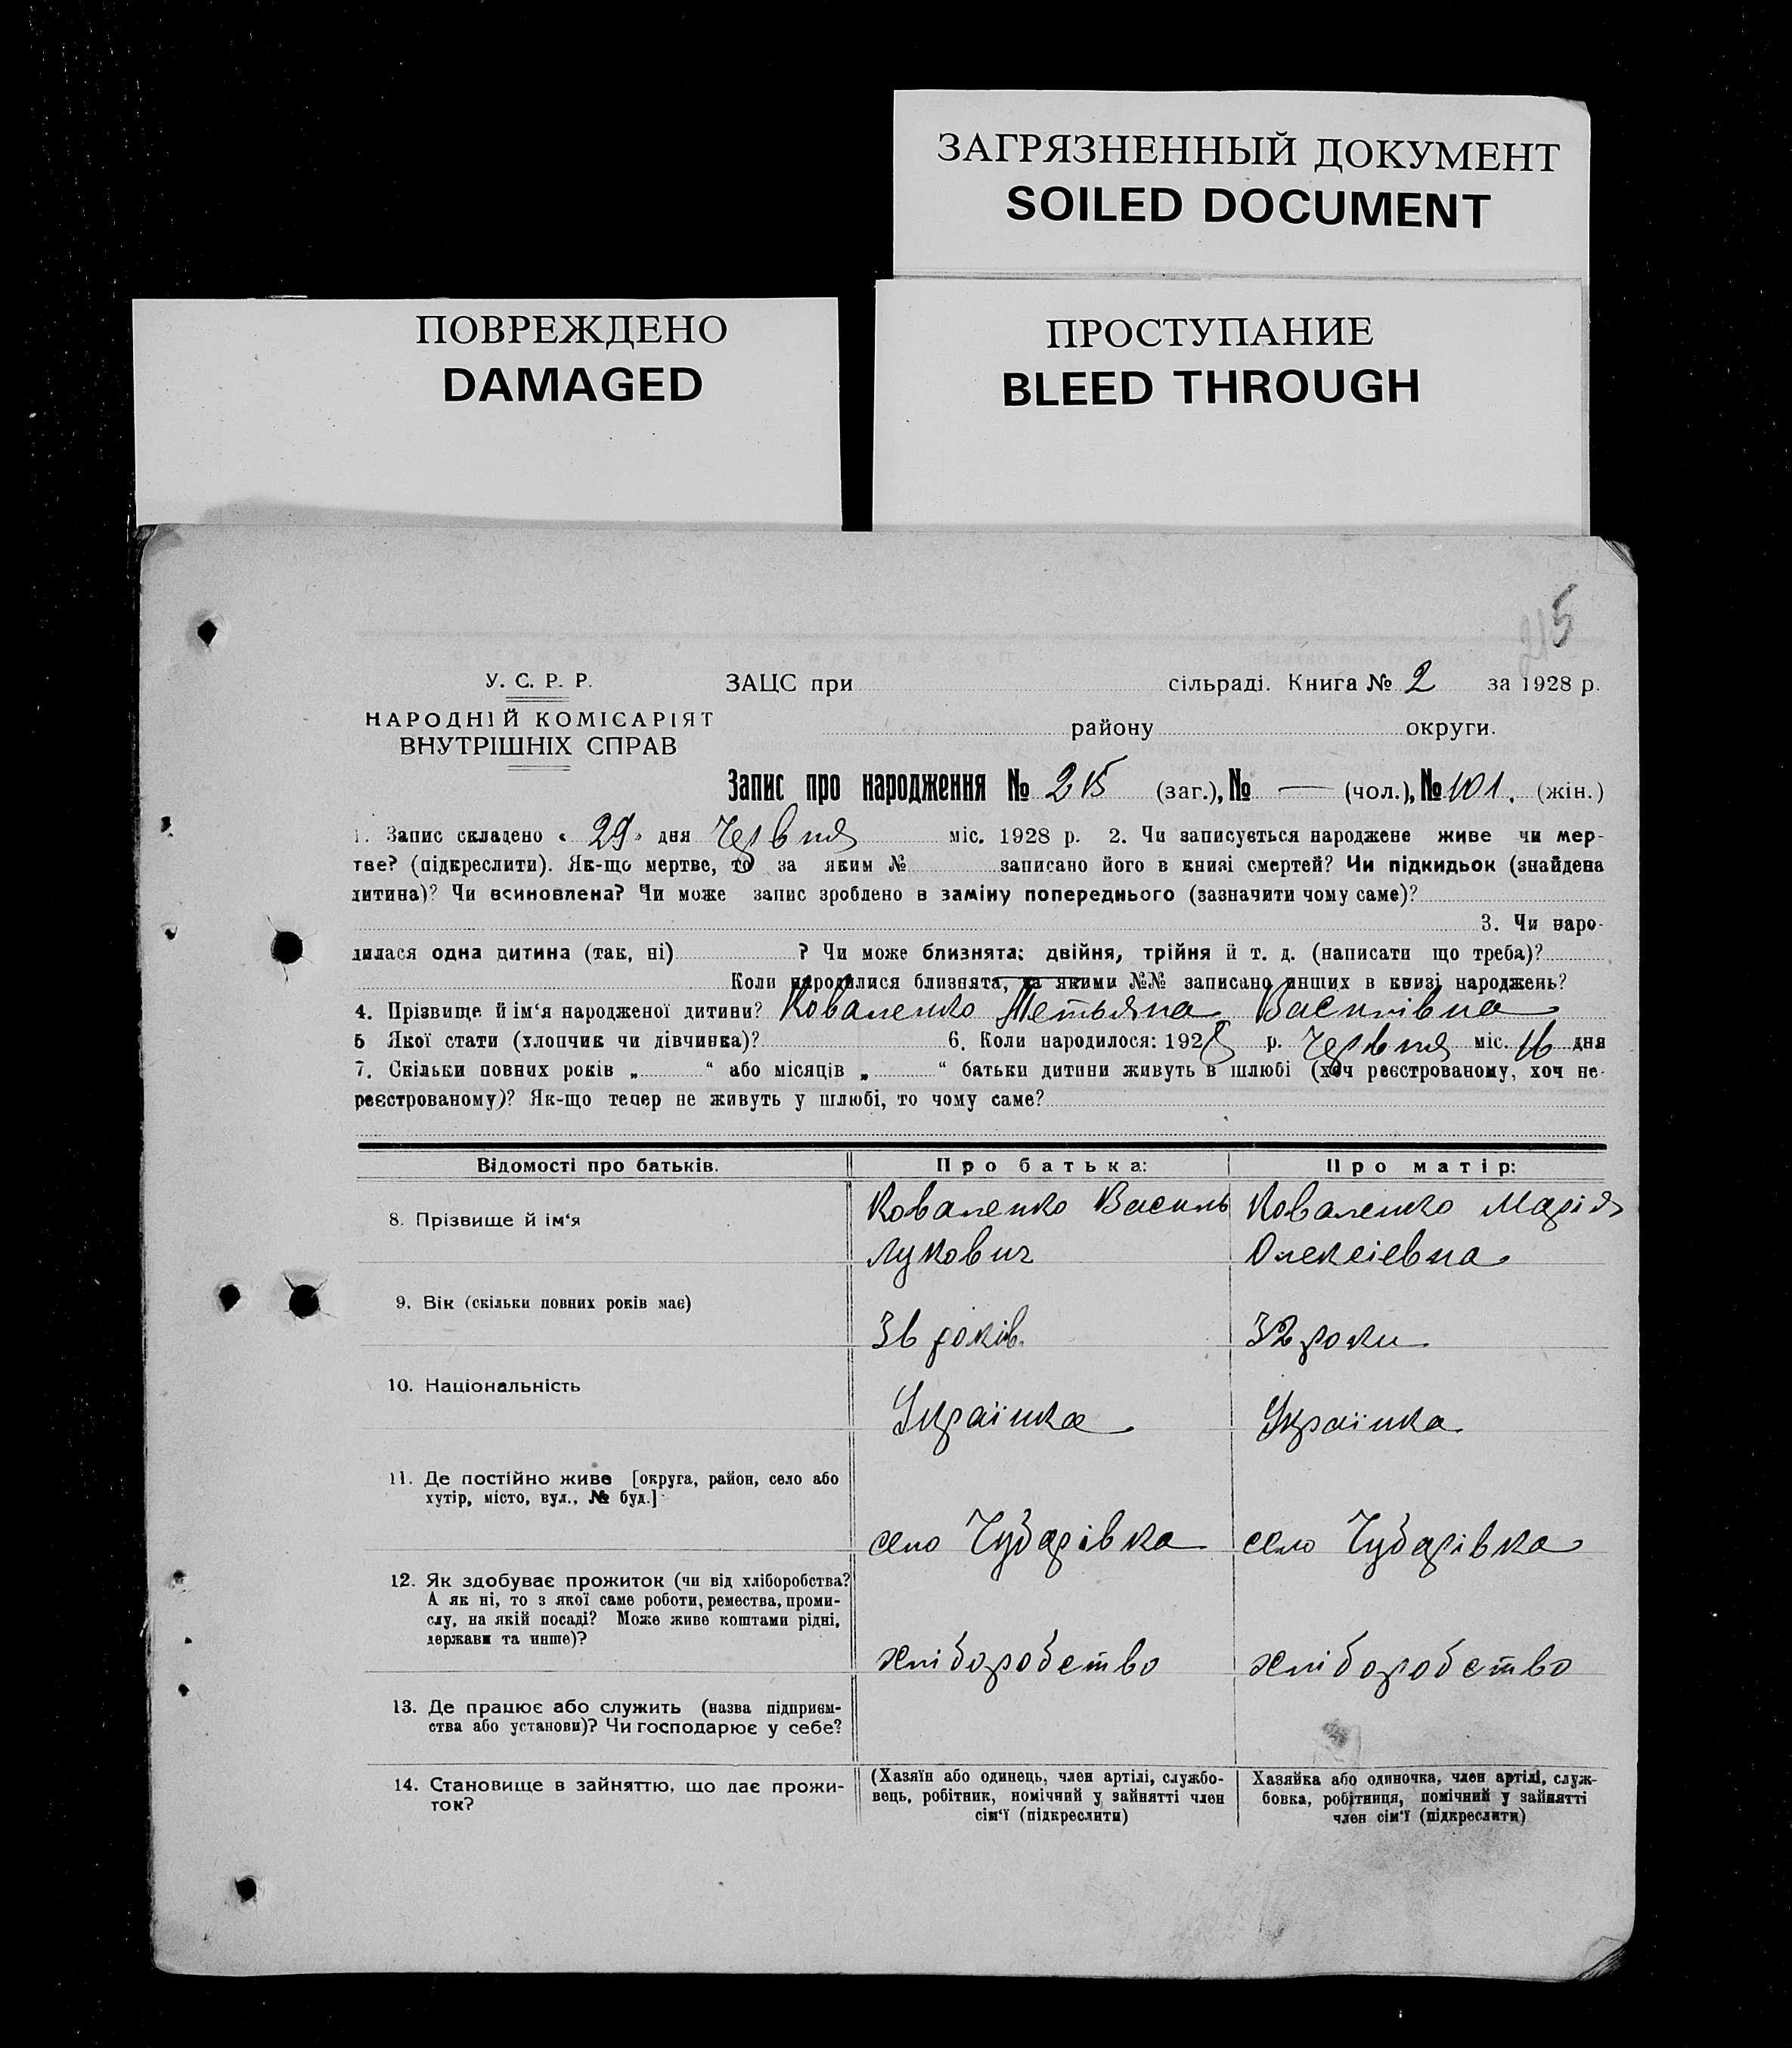 ЗАГРЯЗНЕННЫЙ ДОКУМЕНТ
SOILED DOCUMENT
ПОВРЕЖДЕНО
DAMAGED
ПРОСТУПАНИЕ
BLEED THROUGH
215
У. С. Р. Р.
НАРОДНІЙ КОМІСАРІЯТ
ВНУТРІШНІХ СПРАВ
ЗАЦС при сільраді. Книга № 2 за 1928 р.
району округи.
Запис про народження № 215 (заг.), № — (чол.), № 101. (жін.)
1. Запис складено « 29 » дня Червня міс. 1928 р. 2. Чи записується народжене живе чи мер-
тве? (підкреслити). Як-що мертве, то за яким № записано його в книзі смертей? Чи підкидьок (знайдена
дитина)? Чи всиновлена? Чи може запис зроблено в заміну попереднього (зазначити чому саме)?
3. Чи наро-
дилася одна дитина (так, ні) ? Чи може близнята: двійня, трійня й т. д. (написати що треба)?
Коли народилися близнята, за якими №№ записано инших в книзі народжень?
4. Прізвище й ім‘я народженої дитини? Коваленко Тетьяна Василівна
5 Якої стати (хлопчик чи дівчинка)? 6. Коли народилося: 1928 р. Червня міс. 16 дня
7. Скільки повних років „ “ або місяців „ “ батьки дитини живуть в шлюбі (хоч реєстрованому, хоч не-
реєстрованому)? Як-що тепер не живуть у шлюбі, то чому саме?
Відомості про батьків. Про батька: Про матір:
8. Прізвище й ім‘я
Коваленко Василь
Лукович
Коваленко Марія
Олексіевна
9. Вік (скільки повних років має)
36 років.
32 роки
10. Національність
Українка
Українка
11. Де постійно живе [округа, район, село або
хутір, місто, вул., № буд.]
село Чубарівка
село Чубарівка
12. Як здобуває прожиток (чи від хліборобства?
А як ні, то з якої саме роботи, ремества, проми-
слу, на якій посаді? Може живе коштами рідні,
держави та инше)?
хліборобство
хліборобство
13. Де працює або служить (назва підприєм-
ства або установи)? Чи господарює у себе?
14. Становище в зайняттю, що дає прожи-
ток?
(Хазяїн або одинець, член артілі, службо-
вець, робітник, помічний у зайнятті член
сім‘ї (підкреслити)
Хазяйка або одиночка, член артілі, служ-
бовка, робітниця, помічний у зайнятті
член сім‘ї (підкреслити)